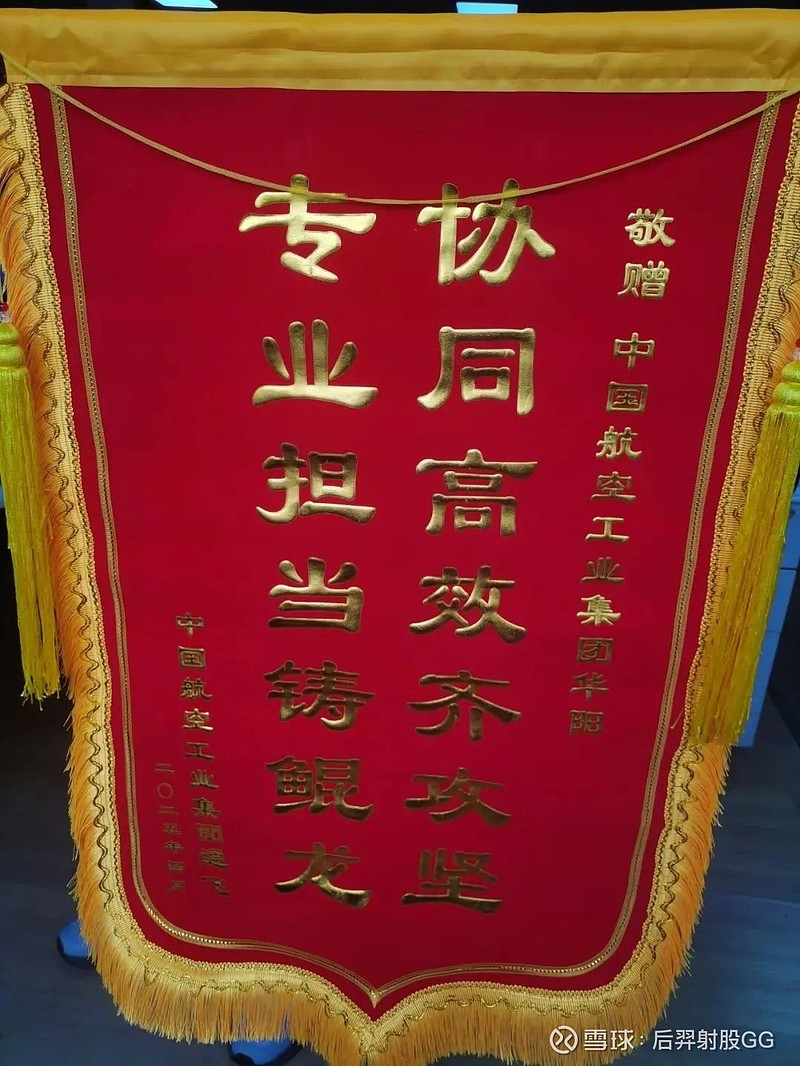 敬赠 中国航空工业集团华阳
协同高效齐攻坚
专业担当铸鲲龙
中国航空工业集团通飞
二〇二五年四月
雪球：后羿射股GG